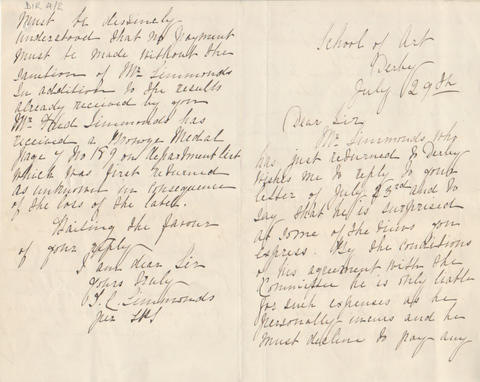 School of Art
Derby
July 29th
Dear Sir
Mr Simmonds who
has just returned to Derby
wishes me to reply to your
letter of July 23rd and to
say that he is surprised
at some of the views you
express. By the conditions
of his agreement with the
Committee he is only liable
for such expenses as he
personally incurs and he
must decline to pay any
DIR 4/2
Must be
understood that no payment
must be made without the
sanction of Mr Simmonds
In addition to the results
already received by you
Mr Simmonds has
received a Bronze Medal
Page 7 No 159 on department list
which was first returned
as unknown in consequence
of the loss of the label.
Waiting the favour
of your reply
I am dear Sir
yours truly
T. C. Simmonds
per